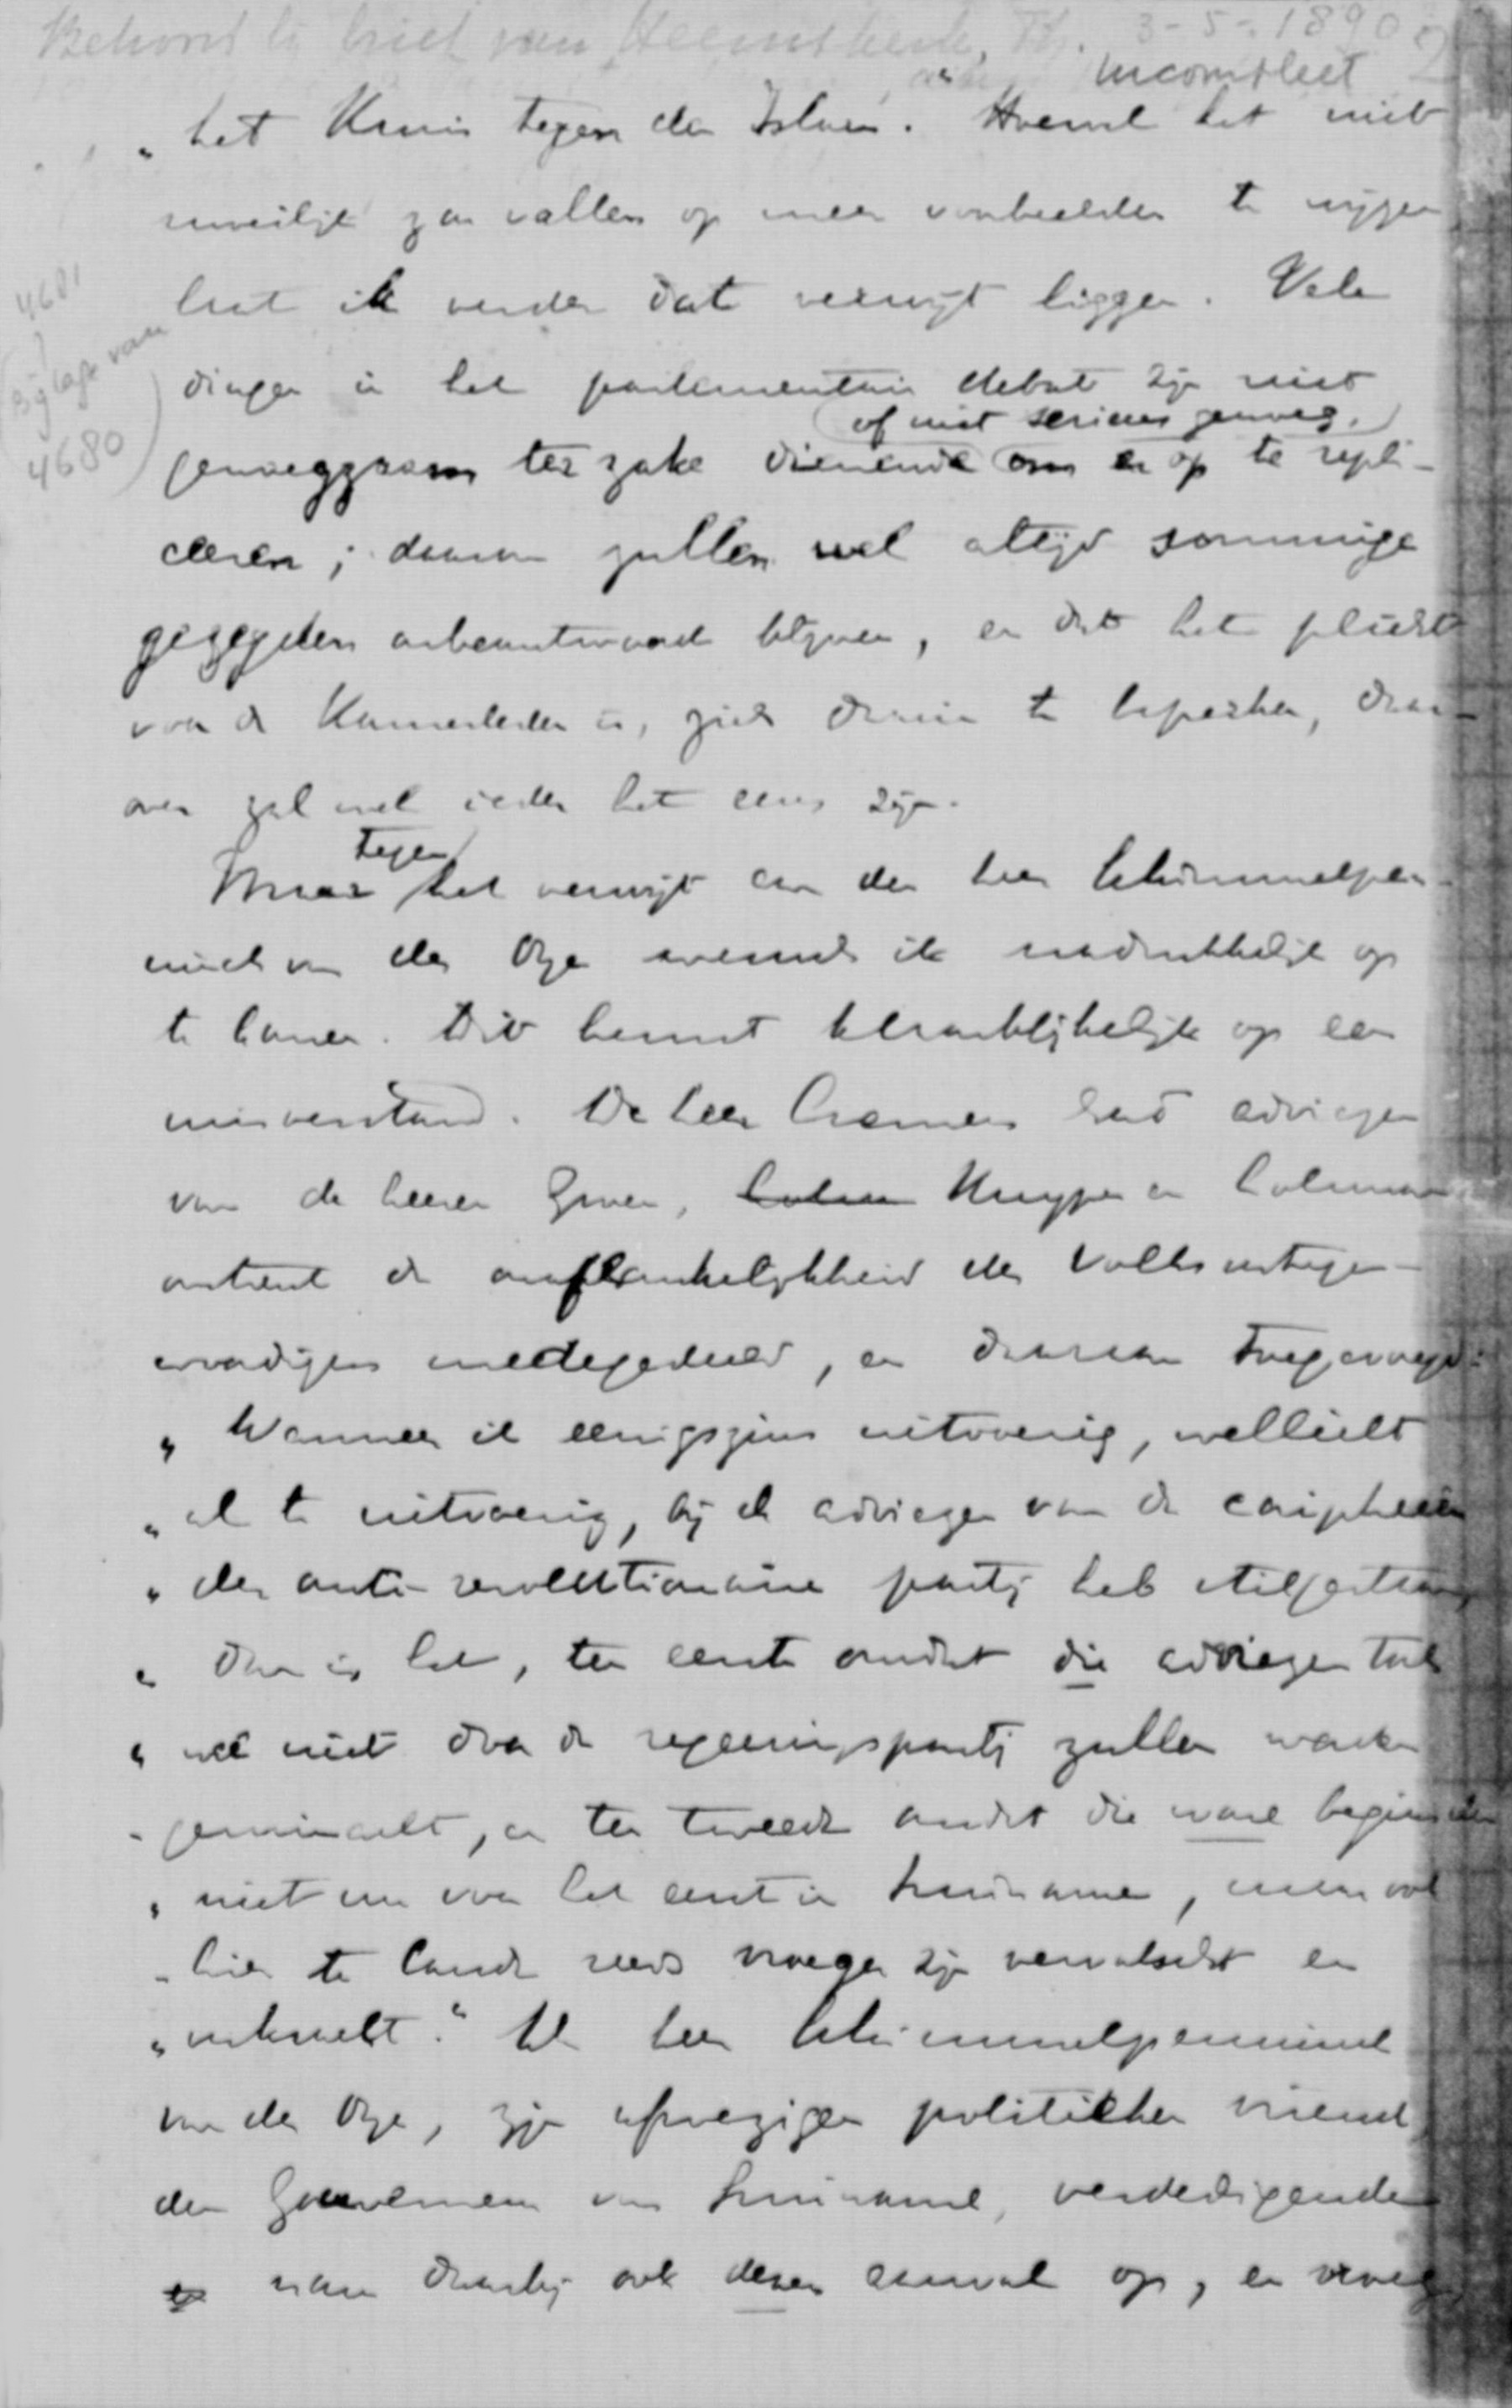 Behoort bij brief van Heemskerk, Th. 3-5-1890 2
incompleet
„het Kruis tegen den Islam. Hoewel het niet
moeilijk zou vallen op meer voorbeelden te wijzen
laat ik verder dat verwijt liggen. Vele
4681
(Bijlage van
4680)
dingen in het parlementair debat zijn niet
of niet serieus genoeg
genoegzaam ter zake dienende om er op te repli-
ceren; daarom zullen wel altijd sommige
gezegden onbeantwoord blijven, en dat het plicht
voor de Kamerleden is, zich daarin te beperken, daar-
over zal wel ieder het eens zijn.
tegen
Maar het verwijt van den heer Schimmelpen-
ninck van der Oye wensch ik nadrukkelijk op
te komen. Dit berust klaarblijkelijk op een
misverstand. De heer Cremer had adviezen
van de heeren Groen, Kuyper en Lohman
omtrent de onafhankelijkheid der volksvertegen-
woordigers medegedeeld, en daaraan toegevoegd:
„Wanneer ik eenigszins uitvoerig, wellicht
„al te uitvoerig, bij de adviezen van de coripheeën
„der anti-revolutionaire partij heb stilgestaan,
„dan is het, ten eerste omdat die adviezen toch
„wel niet door de regeeringspartij zullen worden
„gewraakt, en ten tweede omdat die ware beginselen
„niet nu voor het eerst in Suriname, maar ook
„hier te lande reeds vroeger zijn vervalscht en
„verkracht.“ De heer Schimmelpenninck
van der Oye, zijn afwezigen politieken vriend
den Gouverneur van Suriname, verdedigende
nam daarbij ook dezen aanval op, en vroeg,